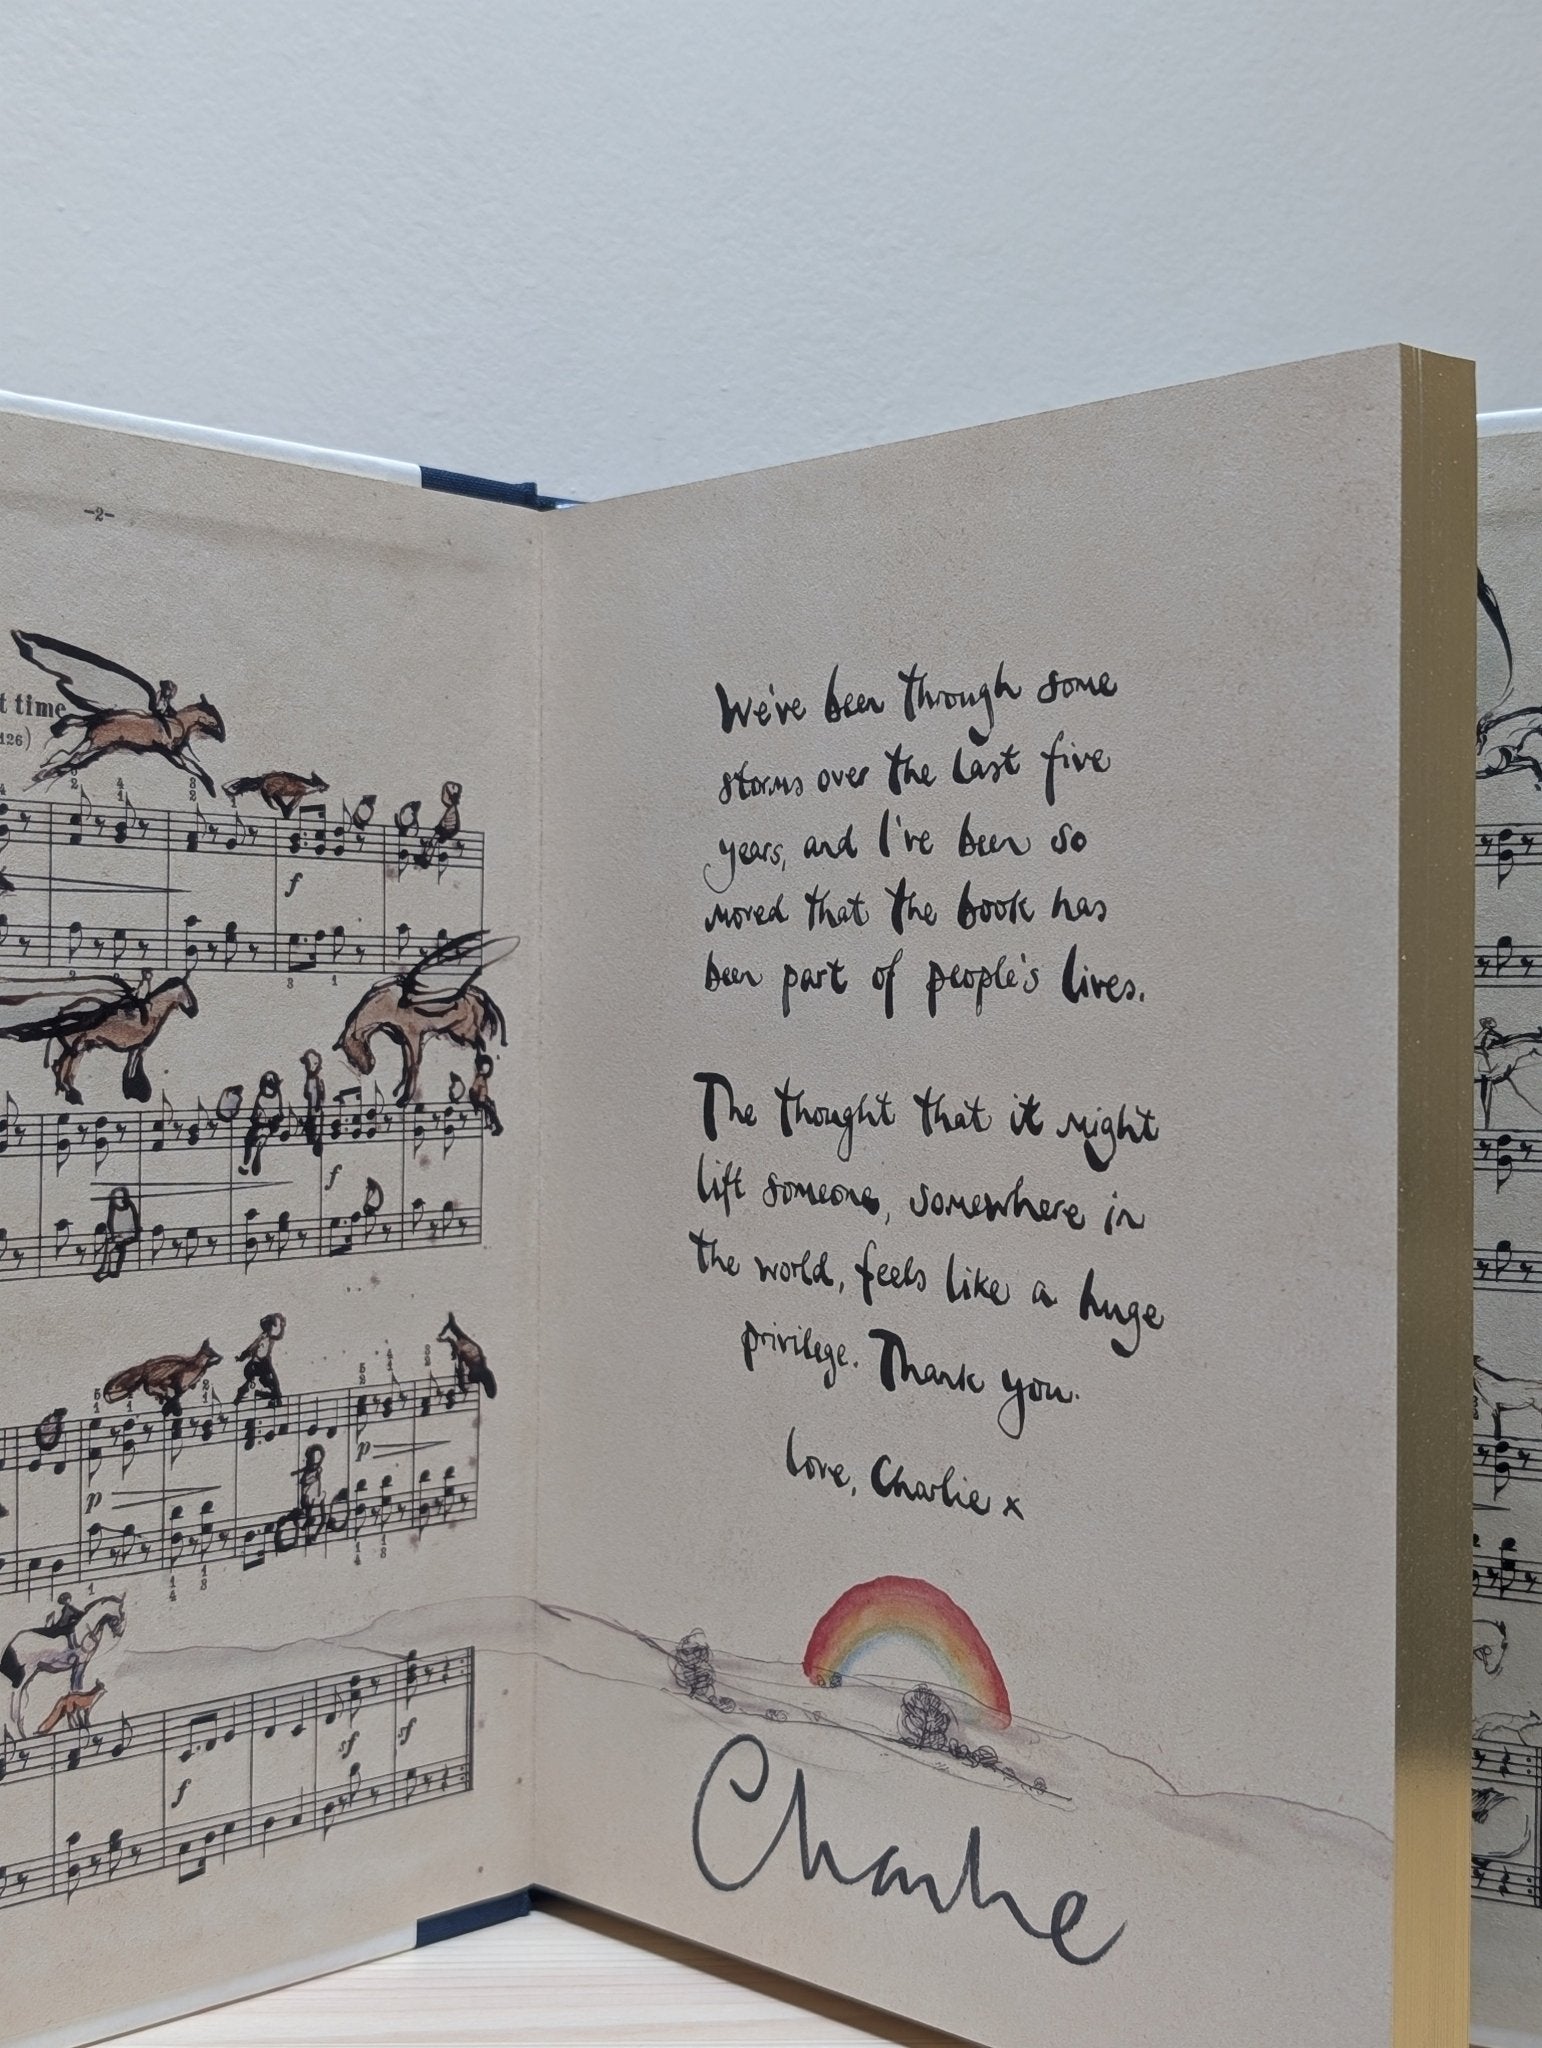 -2-
t time
126)
We've been through some
storms over the last five
years, and I've been so
moved that the book has
been part of people's lives.
The thought that it might
lift someone, somewhere in
the world, feels like a huge
privilege. Thank you.
love, Charlie x
Charlie